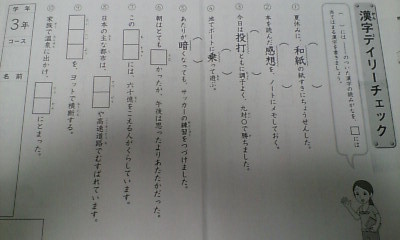 漢字デイリーチェック
①夏休みに、和紙の紙すきにちょうせんした。
②本を読んだ感想を、ノートにメモしておく。
③今日は投打ともに調子よく、九対〇で勝ちました。
④池でボートに乗って遊ぶ。
⑤あたりが暗くなっても、サッカーの練習をつづけました。
⑥朝はとても□かったが、午後は思ったよりあたたかだった。
⑦この□□には、六十億をこえる人がくらしています。
⑧日本の主な都市は、□□や高速道路でむすばれています。
⑨□□を、ヨットで横断する。
⑩家族で温泉に出かけ、□□にとまった。
学年
3年
コース
名前